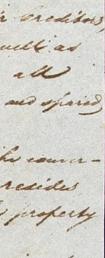 creditors,
well as
all
and spared,
his coun-
resides
property